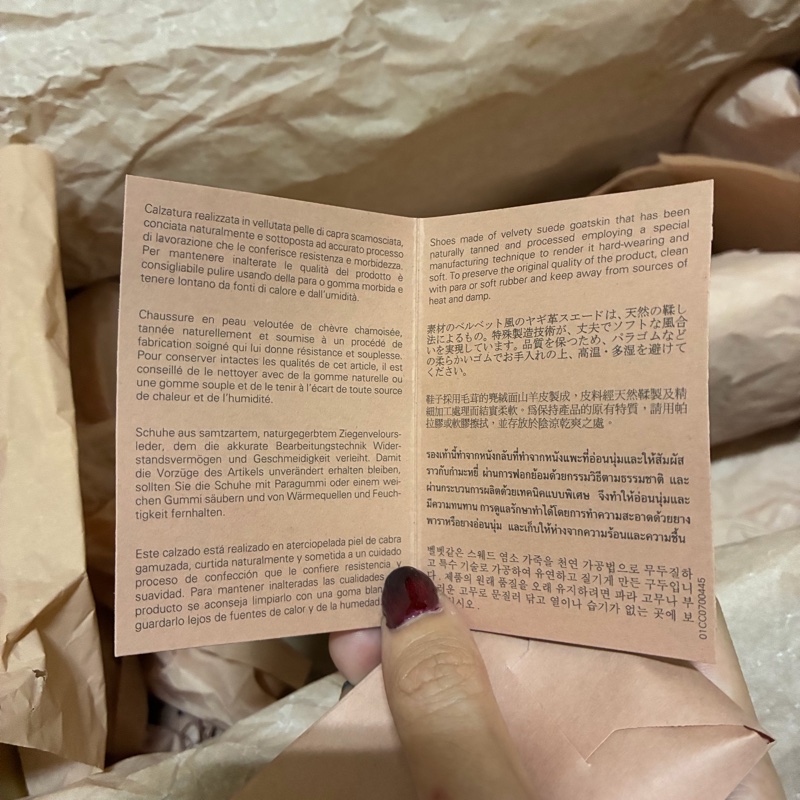 Calzatura realizzata in vellutata pelle di capra scamosciata,
conciata naturalmente e sottoposta ad accurato processo
di lavorazione che le conferisce resistenza e morbidezza.
Per mantenere inalterate le qualità del prodotto è
consigliabile pulire usando della para o gomma morbida e
tenere lontano da fonti di calore e dall'umidità.
Chaussure en peau veloutée de chèvre chamoisée,
tannée naturellement et soumise à un procédé de
fabrication soigné qui lui donne résistance et souplesse.
Pour conserver intactes les qualités de cet article, il est
conseillé de le nettoyer avec de la gomme naturelle ou
une gomme souple et de le tenir à l'écart de toute source
de chaleur et de l'humidité.
Schuhe aus samtzartem, naturgegerbtem Ziegenvelours-
leder, dem die akkurate Bearbeitungstechnik Wider-
standsvermögen und Geschmeidigkeit verleiht. Damit
die Vorzüge des Artikels unverändert erhalten bleiben,
sollten Sie die Schuhe mit Paragummi oder einem wei-
chen Gummi säubern und von Wärmequellen und Feuch-
tigkeit fernhalten.
Este calzado está realizado en aterciopelada piel de cabra
gamuzada, curtida naturalmente y sometida a un cuidado
proceso de confección que le confiere resistencia y
suavidad. Para mantener inalteradas las cualidades
producto se aconseja limpiarlo con una goma
guardarlo lejos de fuentes de calor y de la humedad
Shoes made of velvety suede goatskin that has been
naturally tanned and processed employing a special
manufacturing technique to render it hard-wearing and
soft. To preserve the original quality of the product, clean
with para or soft rubber and keep away from sources of
heat and damp.
素材のベルベット風のヤギ革スエードは、天然の鞣し
法によるもの。特殊製造技術が、丈夫でソフトな風合
いを実現しています。品質を保つため、パラゴムなど
の柔らかいゴムでお手入れの上、高温・多湿を避けて
ください。
鞋子採用毛茸的麂絨面山羊皮製成，皮料經天然鞣製及精
細加工處理而結實柔軟。為保持產品的原有特質，請用帕
拉膠或軟膠擦拭，並存放於陰涼乾爽之處。
รองเท้านี้ทำจากหนังกลับที่ทำจากหนังแพะที่อ่อนนุ่มและให้สัมผัส
ราวกับกำมะหยี่ ผ่านการฟอกย้อมด้วยกรรมวิธีตามธรรมชาติ และ
ผ่านกระบวนการผลิตด้วยเทคนิคแบบพิเศษ จึงทำให้อ่อนนุ่มและ
มีความทนทาน การดูแลรักษาทำได้โดยการทำความสะอาดด้วยยาง
พาราหรือยางอ่อนนุ่ม และเก็บให้ห่างจากความร้อนและความชื้น
벨벳같은 스웨드 염소 가죽을 천연 가공법으로 무두질하
고 특수 기술로 가공하여 유연하고 질기게 만든 구두입니
다. 제품의 원래 품질을 오래 유지하려면 파라 고무나 부
고무로 문질러 닦고 열이나 습기가 없는 곳에 보
01CC0700445